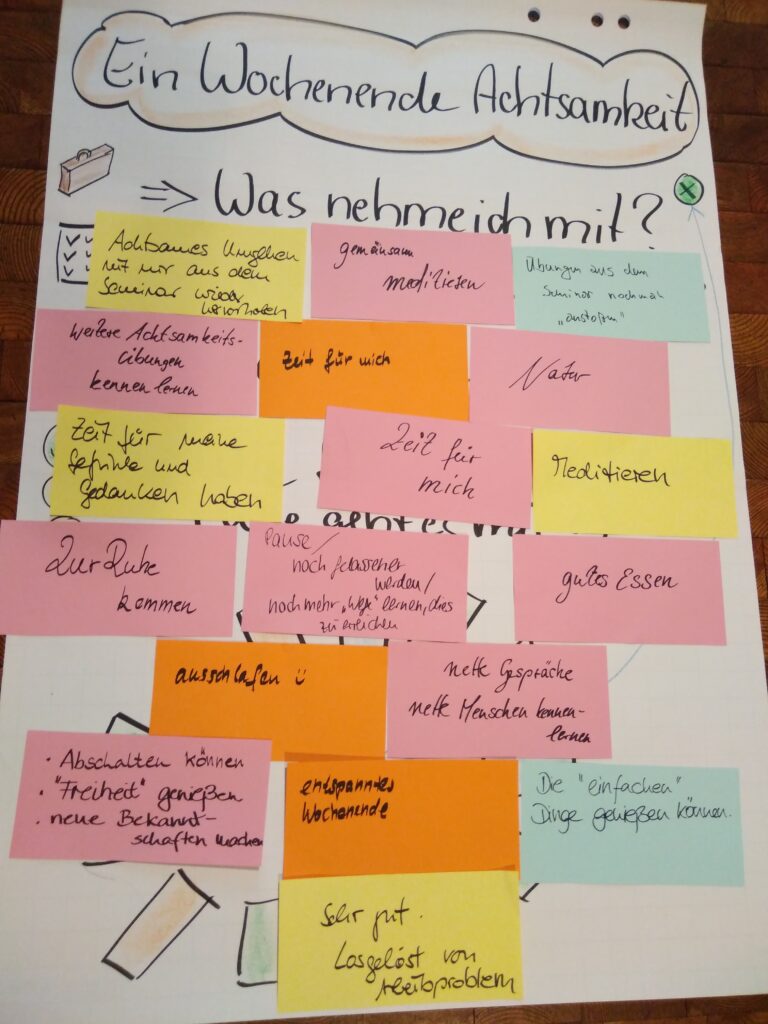 Ein Wochenende Achtsamkeit
=> Was nehme ich mit?
Achtsames Umgehen
mit mir aus dem
Seminar wieder
hervorholen
gemeinsam
meditieren
Übungen aus dem
Seminar nochmal
weitere Achtsamkeits-
übungen
kennen lernen
Zeit für mich
Natur
Zeit für meine
Gefühle und
Gedanken haben
Zeit für
mich
Meditieren
Zur Ruhe
kommen
Pause/
noch gelassener
werden/
noch mehr „Wege" lernen, dies
zu erreichen
gutes Essen
ausschlafen ü
nette Gespräche
nette Menschen kennen-
lernen
· Abschalten können
· "Freiheit" genießen
· neue Bekannt-
schaften machen
entspanntes
Wochenende
Die "einfachen"
Dinge genießen können.
Sehr gut.
Losgelöst von